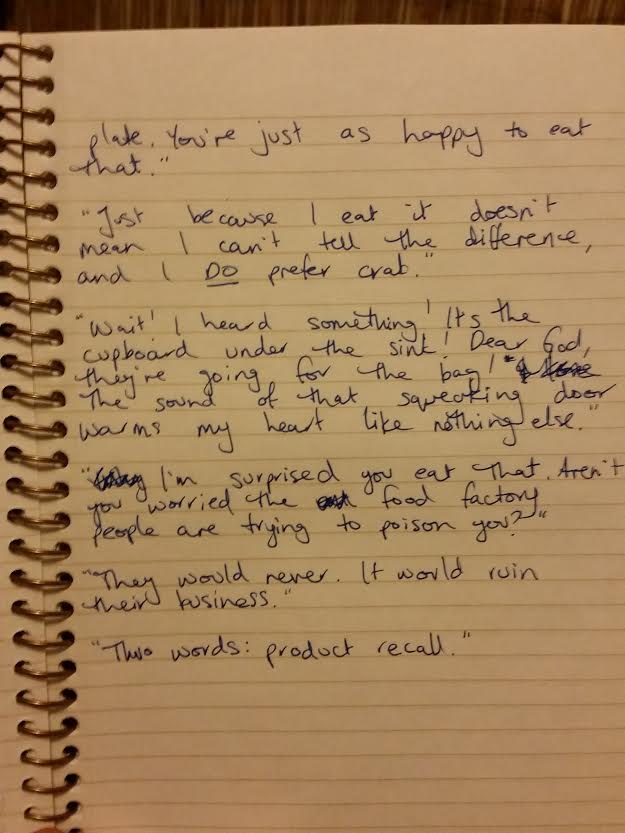 plate. You're just as happy to eat
that."
"Just because I eat it doesn't
mean I can't tell the difference,
and I DO prefer crab."
"Wait! I heard something! It's the
cupboard under the sink! Dear God,
they're going for the bag!
The sound of that squeaking door
warms my heart like nothing else."
"I'm surprised you eat that. Aren't
you worried the food factory
people are trying to poison you?"
"They would never. It would ruin
their business."
"Two words: product recall."